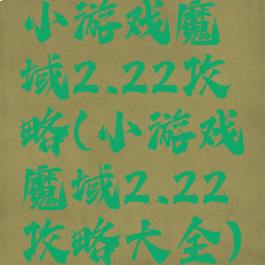 小游戏魔
域2.22攻
略(小游戏
魔域2.22
攻略大全)